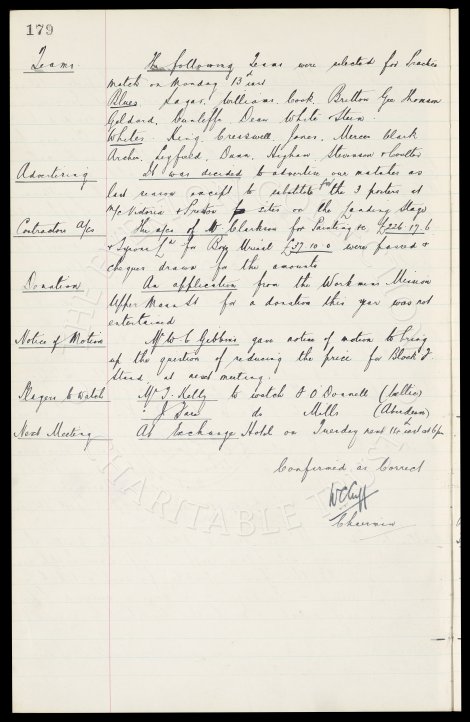 179
Teams The following Teams were selected for Practice
match on Monday 13th inst
Blues Sagar, Williams, Cook, Britton Gee Thomson
Geldard, Cunliffe, Dean White & Stein.
Whites. King, Cresswell, Jones, Mercer Clark
Archer, Leyfield, Dunn, Higham, Stevenson & Coulter
Advertising It was decided to advertise our matches as
last season except to substitute for the 3 posters at
M/c Victoria & Preston sites on the Landing Stage
Contractors a/cs The a/cs of Mr Clarkson for Painting &c £226.17.6
& Tysons Ld for Boys Urinal £37.10.0 were passed &
cheques drawn for the amounts
Donation An application from the Workmens Mission
Upper Mann St for a donation this year was not
entertained
Notice of Motion Mr W.C. Gibbins gave notice of motion to bring
up the question of reducing the price for Block J.
Stand, at next meeting.
Players to Watch Mr T. Kelly to watch F O'Donnell (Celtic)
" J. do Mills (Aberdeen)
Next Meeting At Exchange Hotel on Tuesday next 14th inst at 6pm
Confirmed as Correct
WCCuff
Chairman
CHARITABLE